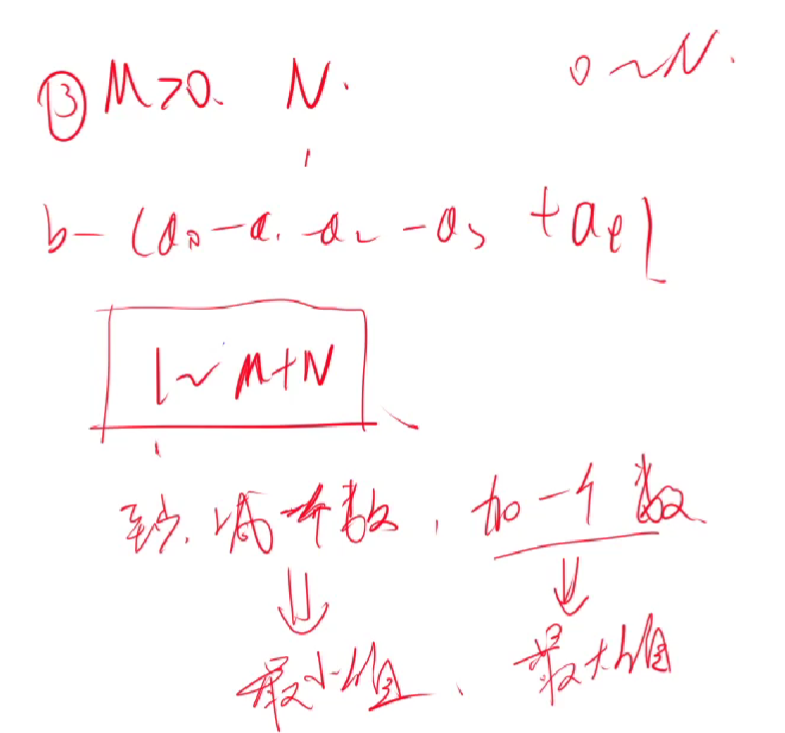 ③ M>0. N. 0~N.
b-(a₀-a₁-a₂-a₃+aₑ)
1~M+N
至少减一个数，加一个数
⇓ ⇓
最小值、最大值